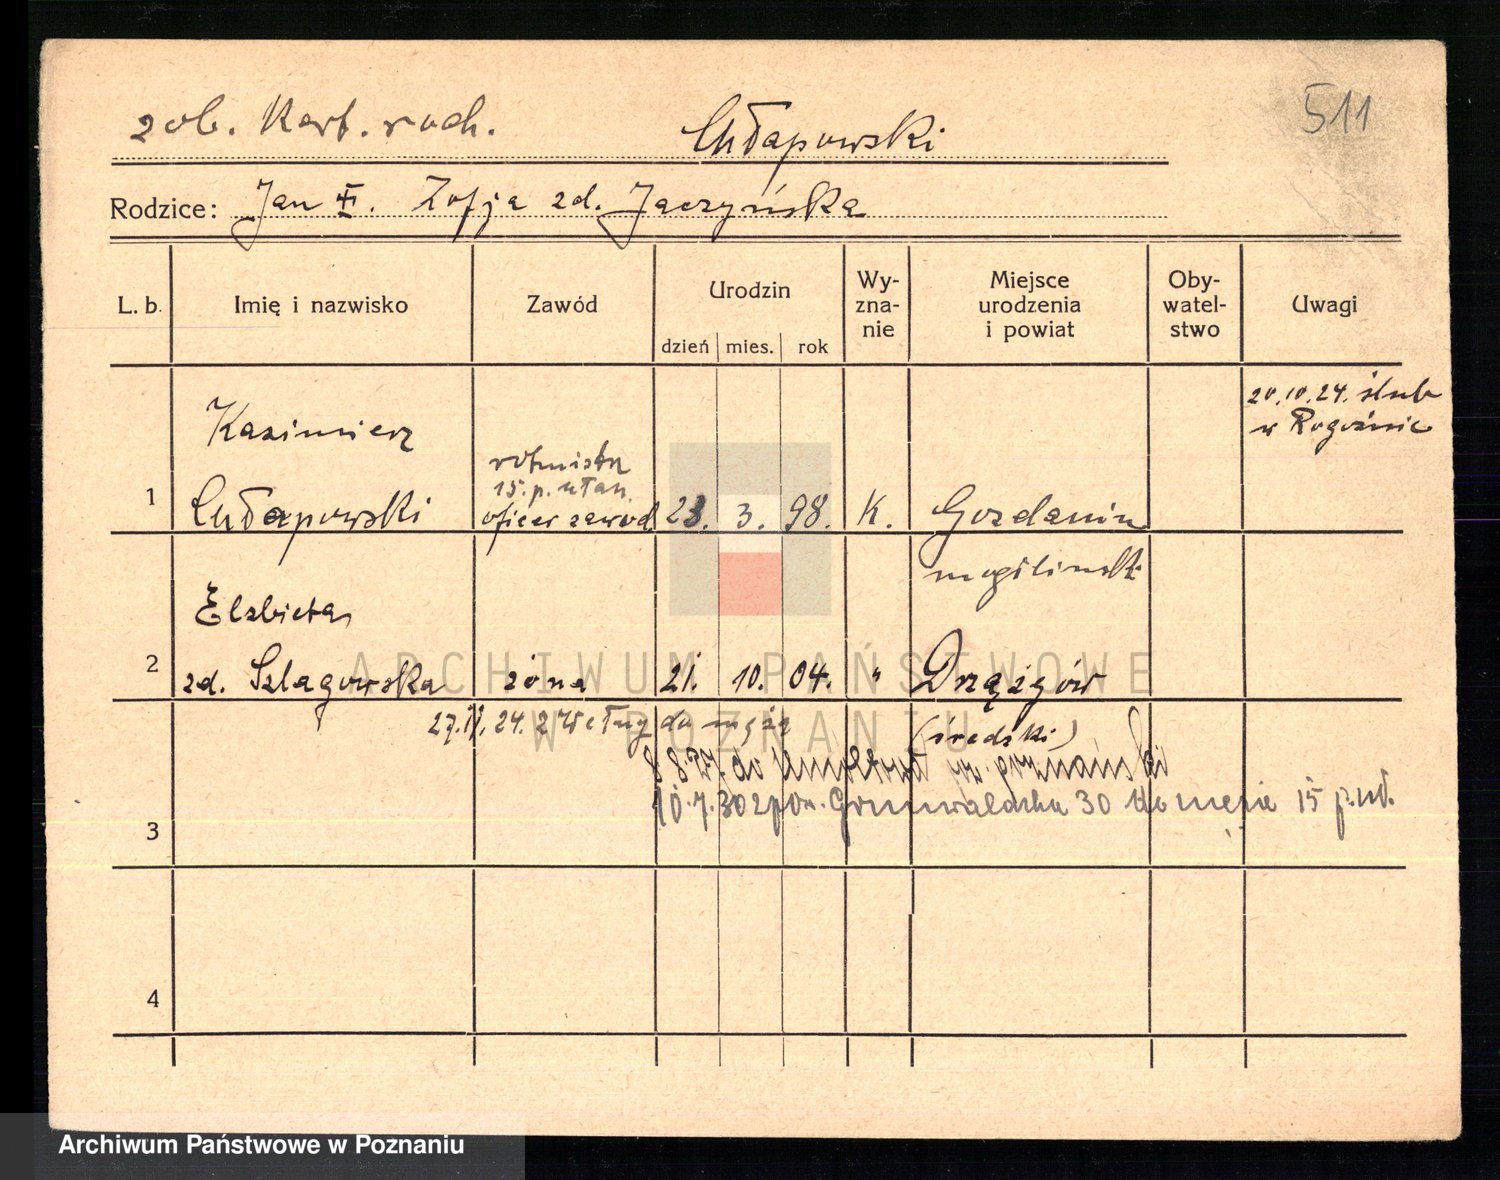 511
zob. Kart. rodz.
Chłapowski
Rodzice: Jan †. Zofja zd. Jaczyńska
L. b. Imię i nazwisko Zawód Urodzin Wy-zna-nie Miejsce urodzenia i powiat Oby-watel-stwo Uwagi
dzień mies. rok
20.10.24. ślub
w Rogoźnie
Kazimierz
rotmistrz
15. p. ułan.
1 Chłapowski oficer zawod. 23. 3. 98. K. Gozdanin
mogilinski
Elzbieta
2 zd. Szlagowska żona 21. 10. 04. " Drzązgów
(średzki)
27.11.24. z Wełny do męża
8 8. do pow. poznański
10.7.30 z pow. Grunwaldzka 30 do męża 15 p. uł.
3
4
ARCHIWUM PAŃSTWOWE
W POZNANIU
Archiwum Państwowe w Poznaniu